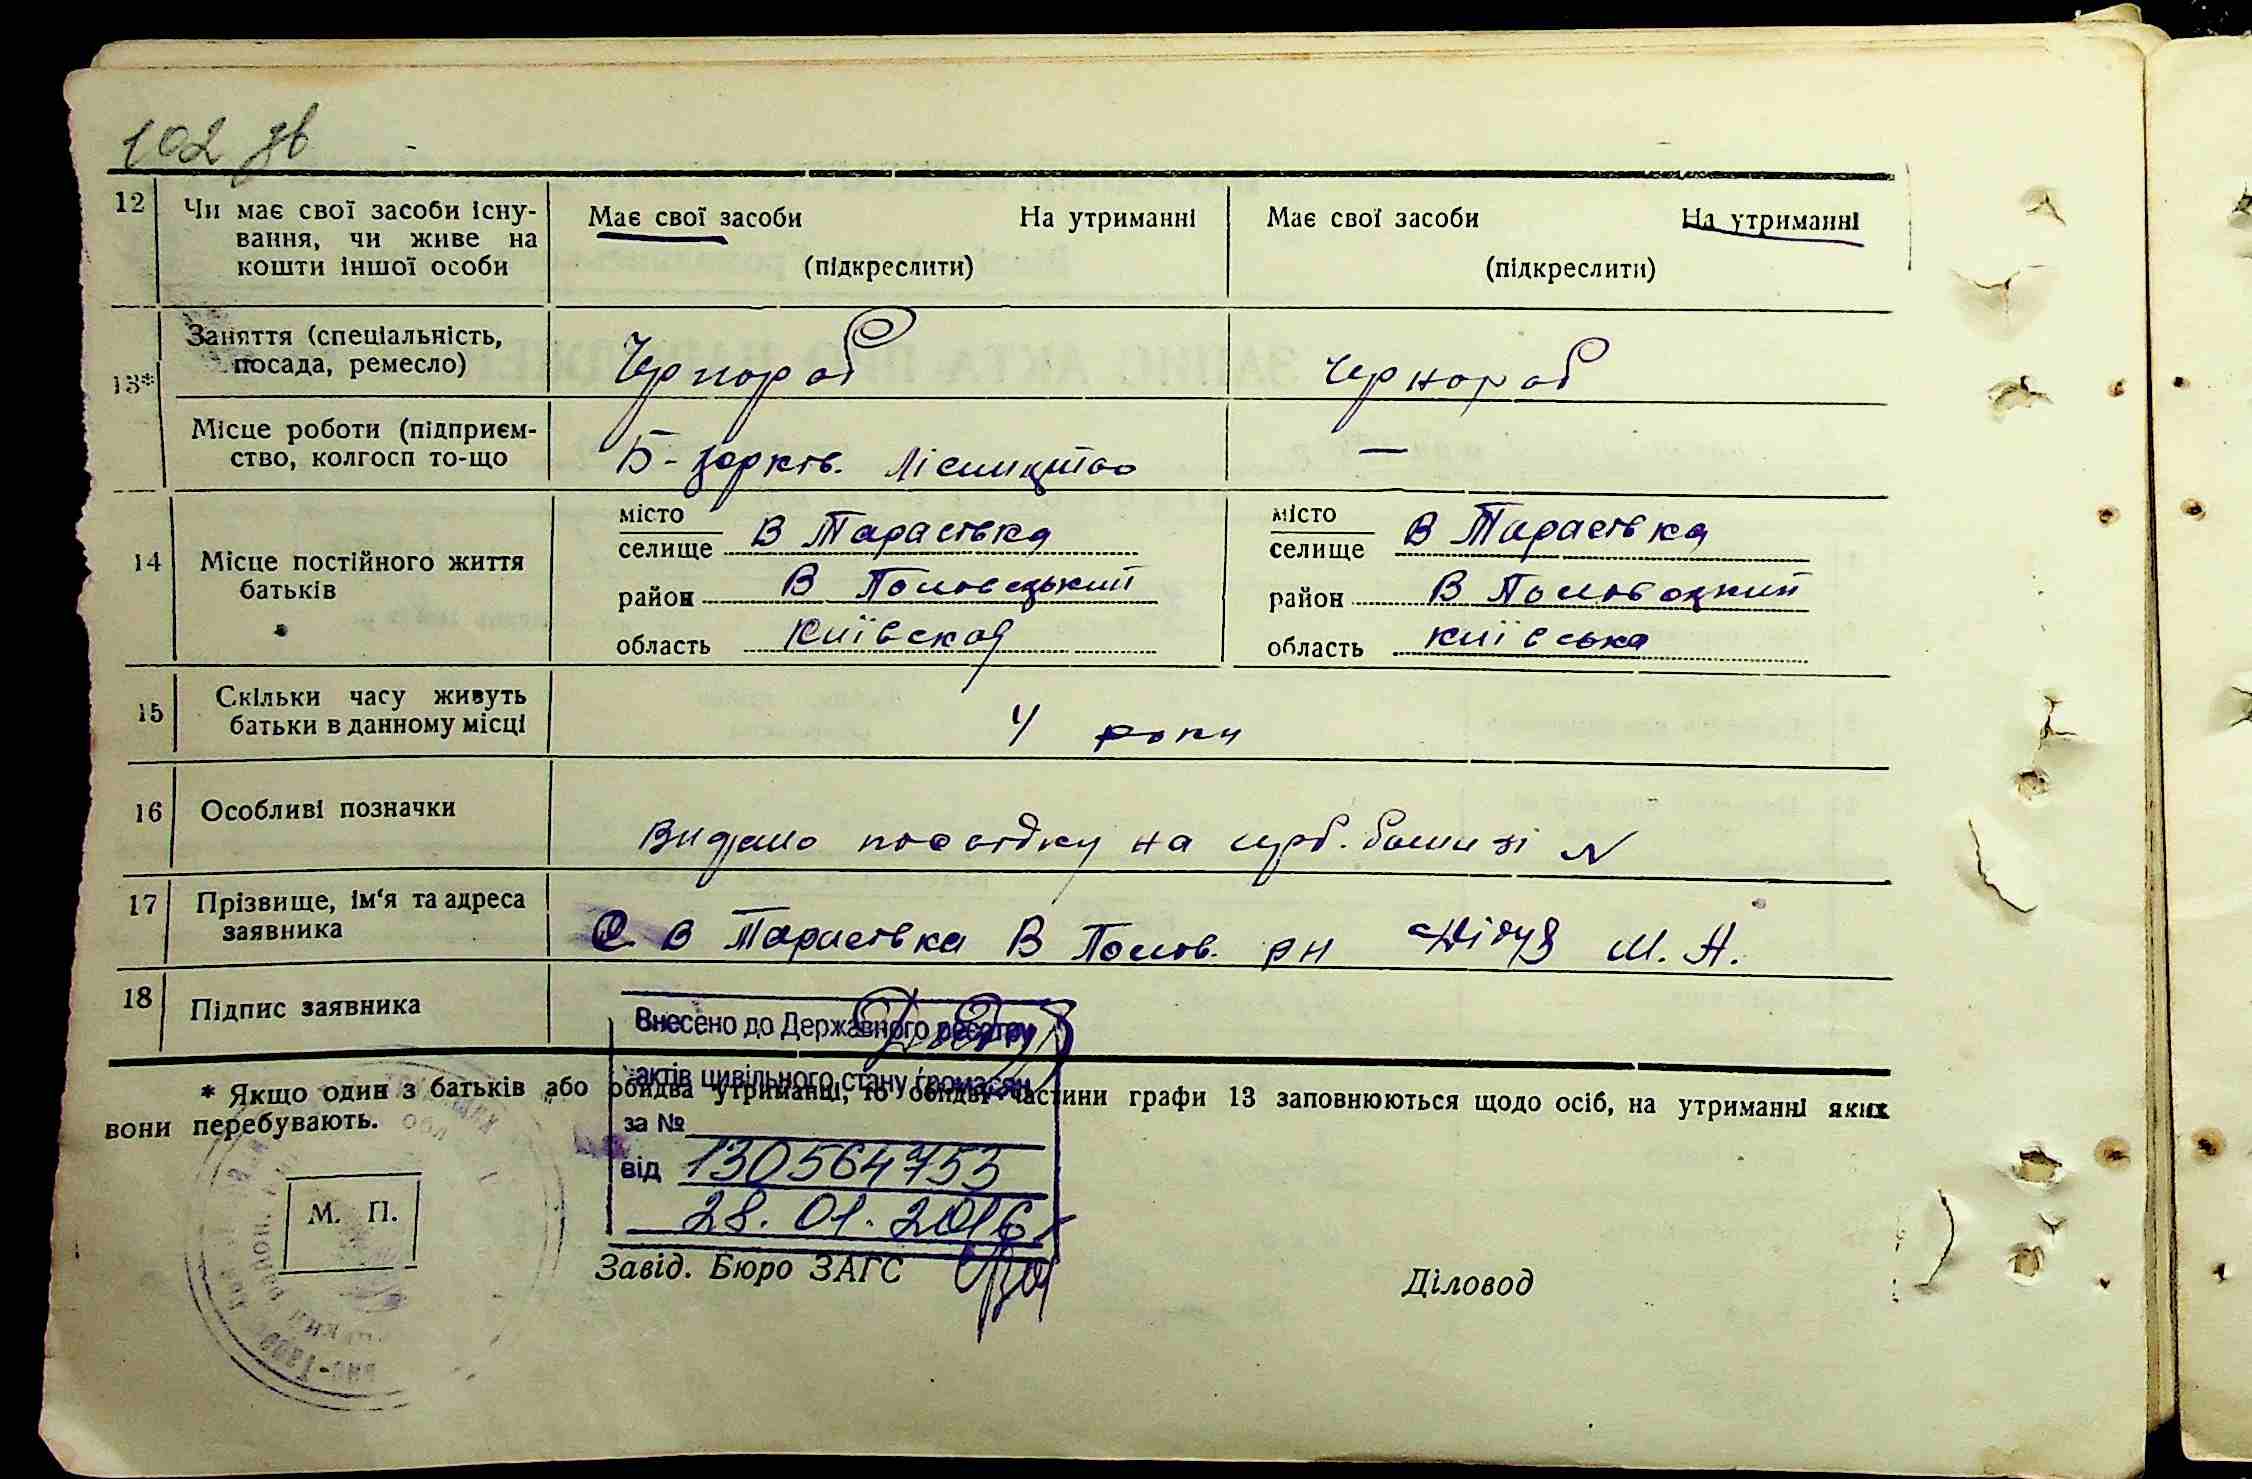 102 зв
12 Чи має свої засоби існу-
вання, чи живе на
кошти іншої особи
Має свої засоби На утриманні
(підкреслити)
Має свої засоби На утриманні
(підкреслити)
13* Заняття (спеціальність,
посада, ремесло)
Чернороб
чернороб
Місце роботи (підприєм-
ство, колгосп то-що
Б-церктв. Лісництво
—
14 Місце постійного життя
батьків
місто
селище В Тарасівка
район В Половецький
область Київская
місто
селище В Тарасівка
район В Половецкий
область Київська
15 Скільки часу живуть
батьки в данному місці
4 роки
16 Особливі позначки
Видано посвідку на №
17 Прізвище, ім'я та адреса
заявника
С В Тарасівка В Полов. рн Дідух М. А.
18 Підпис заявника
Внесено до Державного реєстру
актів цивільного стану громадян
за №
від 130564753
28.01.2016
* Якщо один з батьків або обидва утриманці, то обидві частини графи 13 заповнюються щодо осіб, на утриманні яких
вони перебувають.
М. П.
Завід. Бюро ЗАГС
Діловод